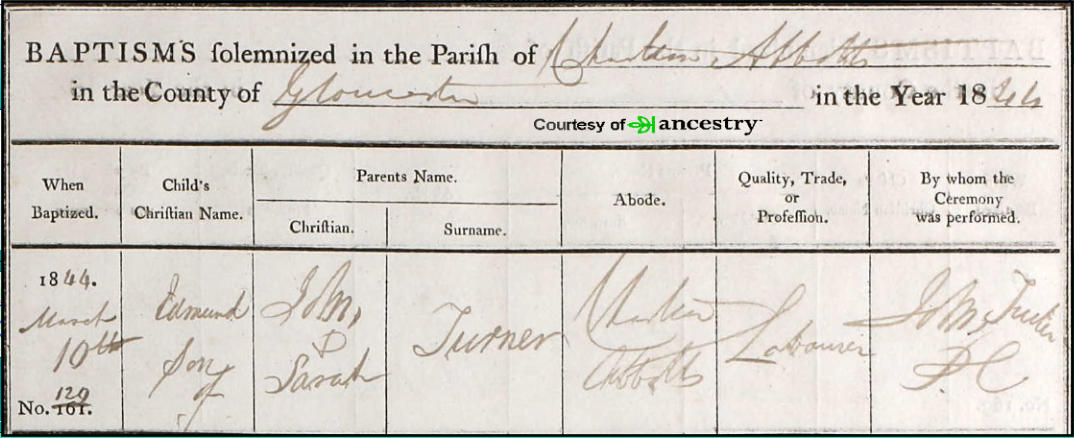 BAPTISMS ſolemnized in the Pariſh of Charlton Abbotts
in the County of Gloucester in the Year 1844
Courtesy of ancestry
When Baptized.
Child's Chriſtian Name.
Parents Name.
Chriſtian.
Surname.
Abode.
Quality, Trade, or Profeſſion.
By whom the Ceremony was performed.
1844.
March
10th
No. 161.
129
Edmund
Son
of
John
Sarah
Turner
Charlton
Abbotts
Labourer
John Tucker